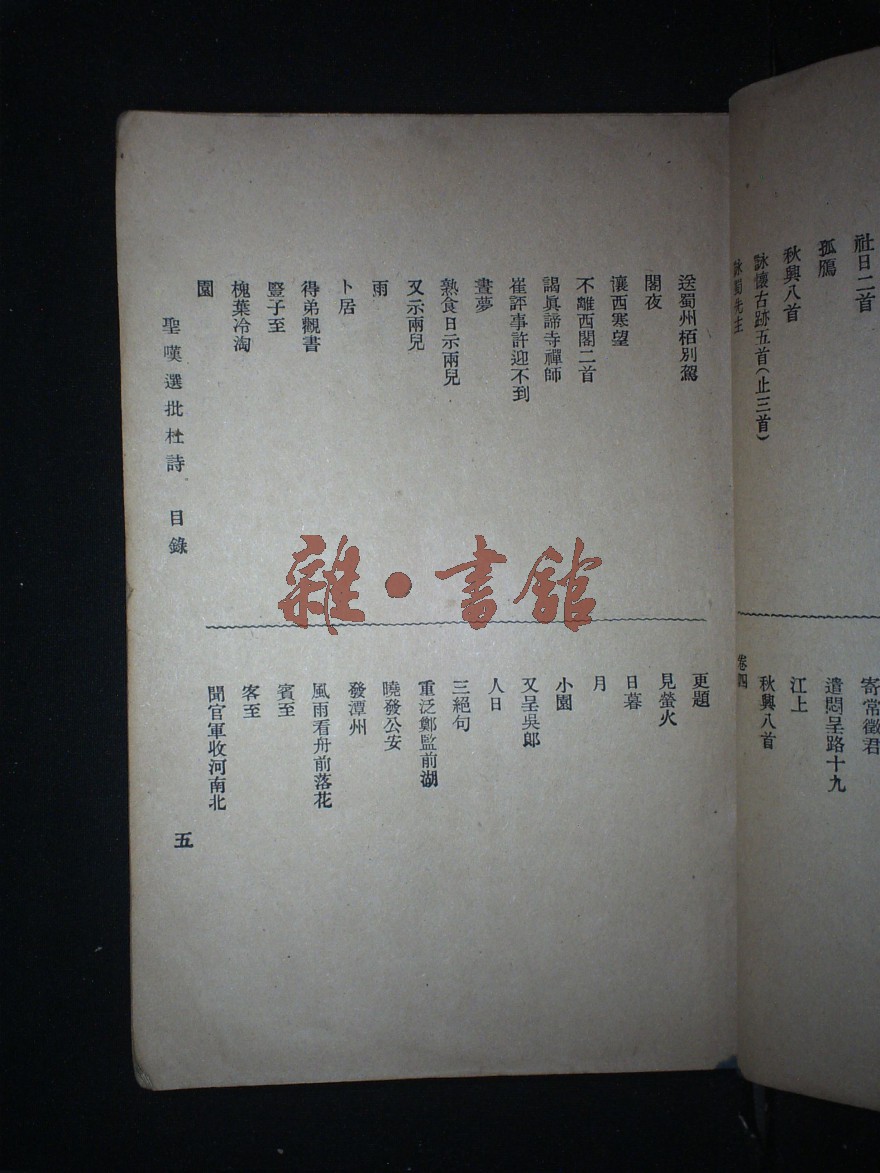 社日二首
孤鴈
秋興八首
詠懷古跡五首(止三首)
詠蜀先主
寄常徵君
遣悶呈路十九
江上
秋興八首
卷四
送蜀州栢別駕
閣夜
瀼西寒望
不離西閣二首
謁眞諦寺禪師
崔評事許迎不到
晝夢
熟食日示兩兒
又示兩兒
雨
卜居
得弟觀書
豎子至
槐葉冷淘
園
更題
見螢火
日暮
月
小園
又呈吳郞
人日
三絕句
重泛鄭監前湖
曉發公安
發潭州
風雨看舟前落花
賓至
客至
聞官軍收河南北
聖嘆選批杜詩 目錄
五
雜·書館